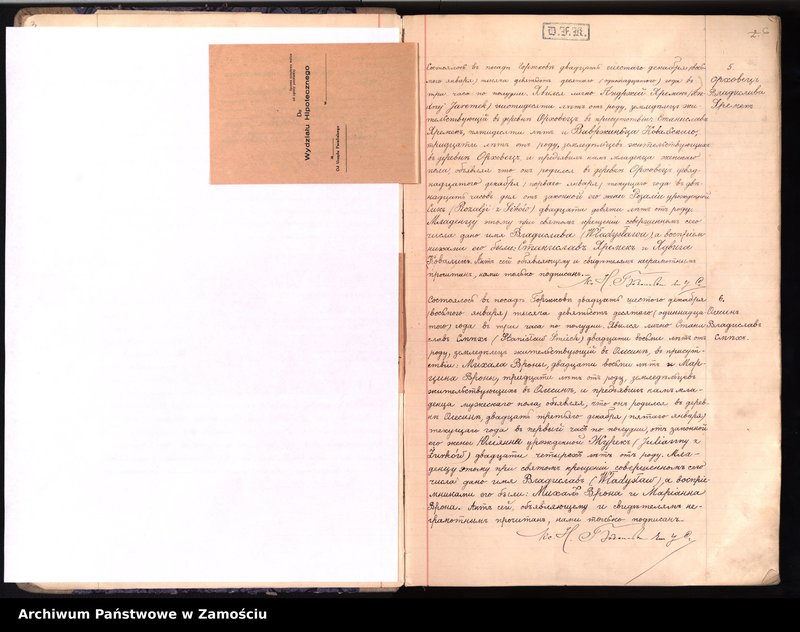 D.F.R.
Do
Wydziału Hipotecznego
w
Od Urzędu Parafialnego
w
5
Орховецъ
Владислава
Хремекъ
Состоялось въ посадѣ Горжковъ двадцать шестого декабря /вось-
мого января/ тысяча девятьсотъ десятого /одинадцатого/ года въ
три часа по полудни. Явился лично Андржей Хремекъ
лѣтъ отъ роду, земледѣлецъ жи-
тельствующій въ деревни Орховецъ въ присутствіи Станислава
Хремекъ, пятидесяти лѣтъ и Вавржинца Ковальского,
тридцати лѣтъ отъ роду, земледѣльцевъ жительствующихъ
въ деревни Орховецъ, и предъявилъ намъ младенца женского
пола, объявляя что онъ родился въ деревни Орховецъ девят-
надцатого декабря /первого января/ текущаго года въ две-
надцать часовъ дня отъ законной его жены Розаліи урожденной
(Rozalji z ) двадцати девяти лѣтъ отъ роду.
Младенцу этому при святомъ крещеніи совершенномъ сего
числа дано имя Владислава (Władysława), а воспріем-
никами его были: Станиславъ Хремекъ и Ядвига
Ковалик. Актъ сей объявляющему и свидѣтелямъ неграмотнымъ
прочитанъ, нами только подписанъ.
6.
Олесинъ
Владиславъ
Смыхъ.
Состоялось въ посадѣ Горжковъ двадцать шестого декабря
/восьмого января/ тысяча девятьсотъ десятого /одиннадца-
того/ года въ три часа по полудни. Явился лично Стани-
славъ (Stanisław ) двадцати восьми лѣтъ отъ
роду, земледѣлецъ жительствующій въ Олесинѣ, въ присут-
ствіи: Михала Вроны, двадцати восьми лѣтъ и Мар-
цина Вроны, тридцати лѣтъ отъ роду, земледѣльцевъ
жительствующихъ въ Олесинѣ, и предъявилъ намъ мла-
денца мужескаго пола, объявляя, что онъ родился въ дерев-
ни Олесинъ, двадцать третьяго декабря /пятаго января/
текущаго года въ первый часъ по полудни, отъ законной
его жены Юліянны урожденной Журекъ (Julianny z
Żurków) двадцати четырехъ лѣтъ отъ роду. Мла-
денцу этому при святомъ крещеніи совершенномъ сего
числа дано имя Владиславъ (Władysław), а воспріе-
мниками его были: Михалъ Врона и Маріанна
Врона. Актъ сей, объявляющему и свидѣтелямъ не-
грамотнымъ прочитанъ, нами только подписанъ.
Archiwum Państwowe w Zamościu